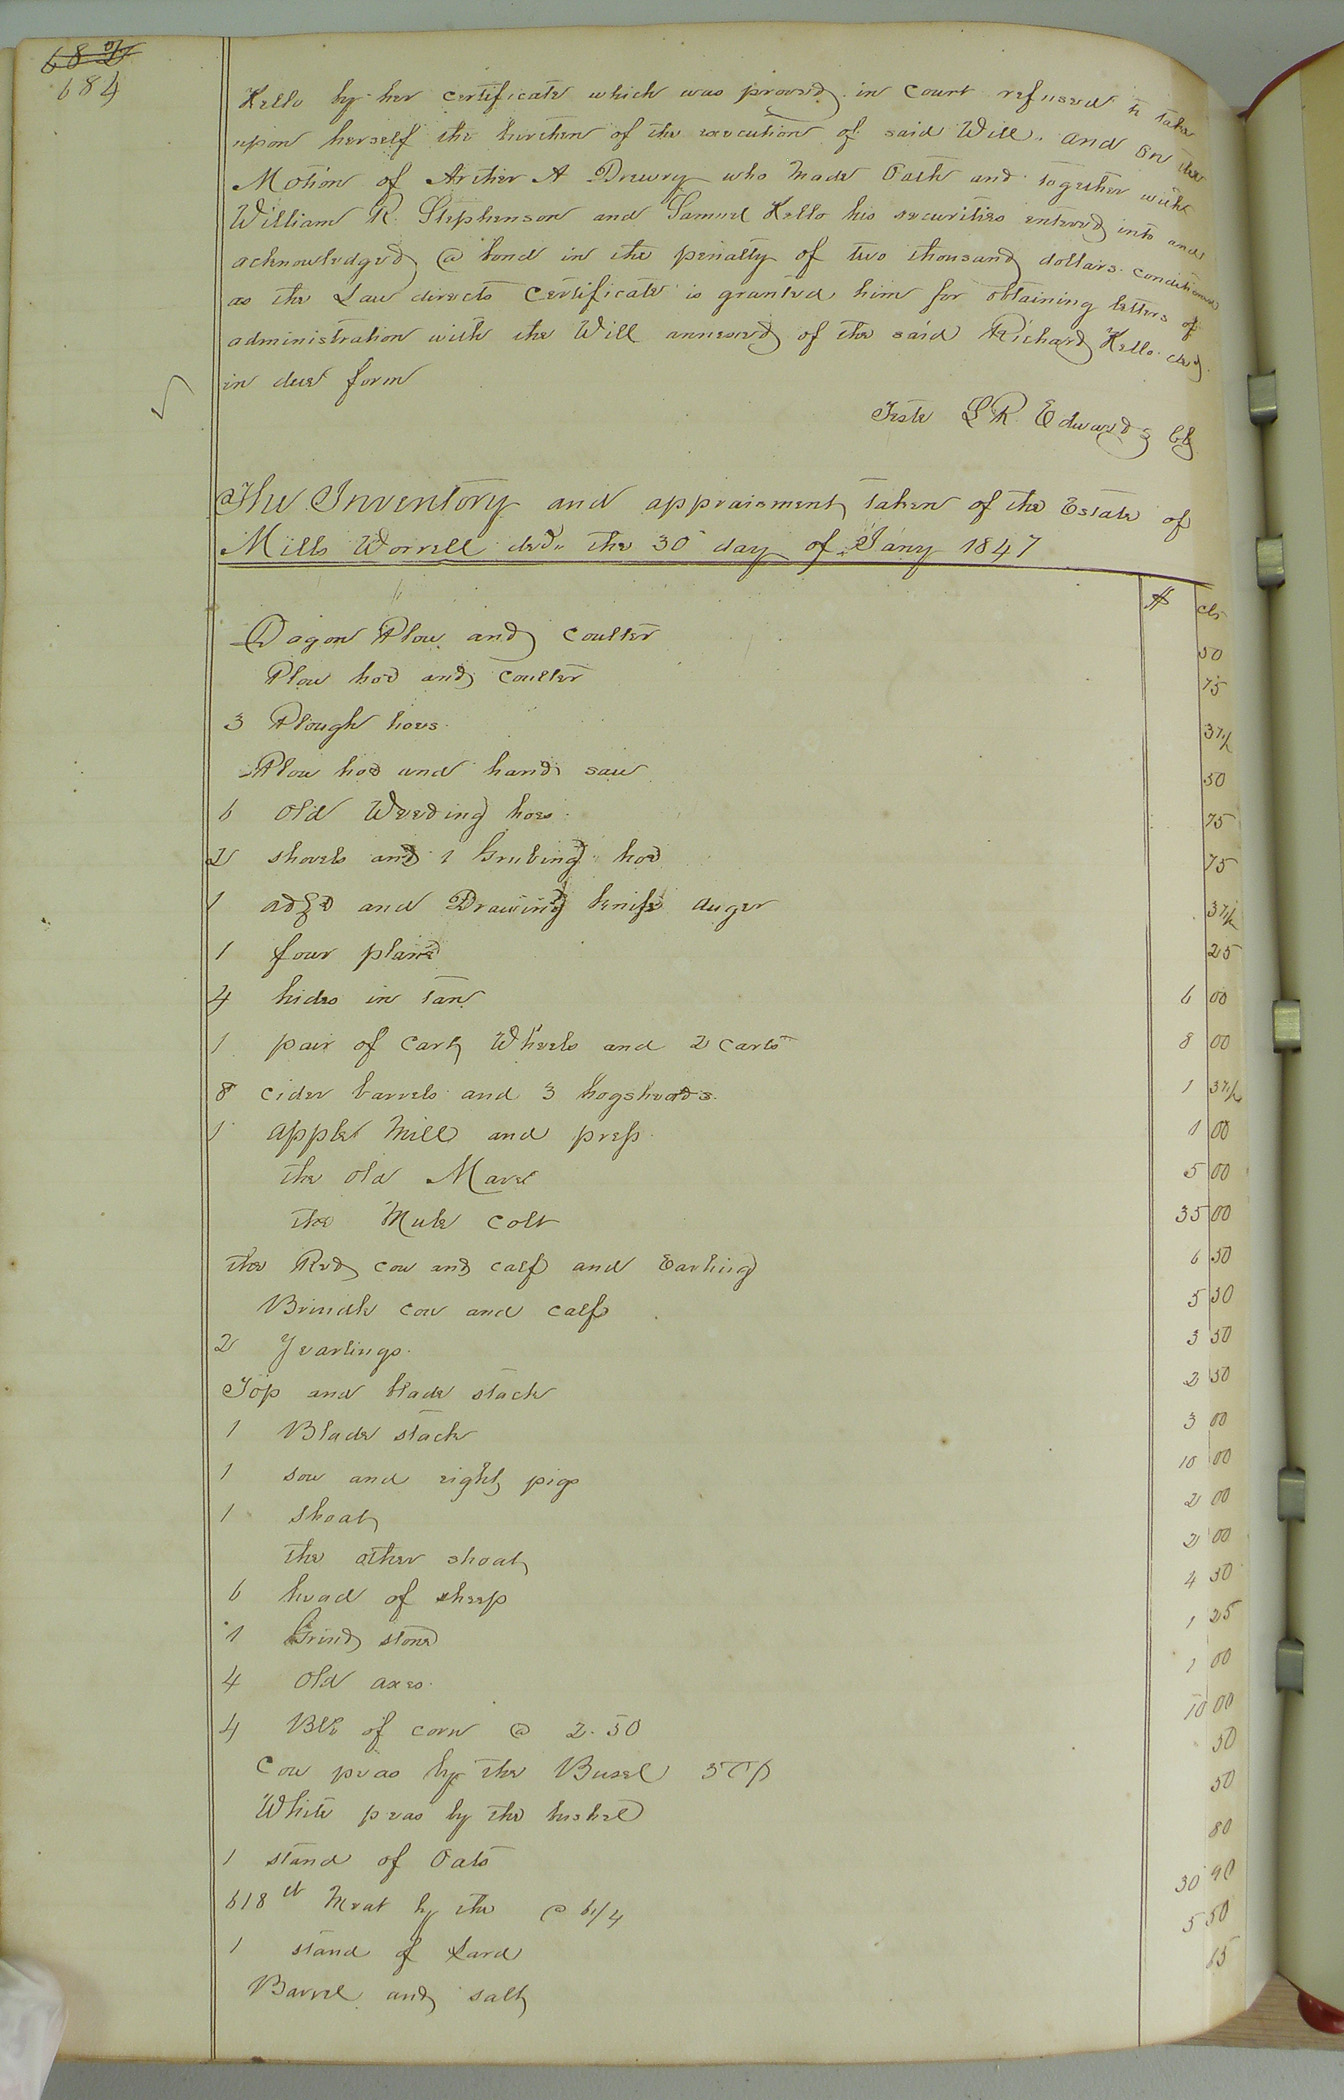 684
Kello by her certificate which was proved in Court refused to take
upon herself the burthen of the execution of said Will. and on the
Motion of Archer A Drewry who made Oath and together with
William R. Stephenson and Samuel Kello his securities entered into and
acknowledged @ bond in the penalty of two thousand dollars conditioned
as the Law directs Certificate is granted him for obtaining letters of
administration with the Will annexed of the said Richard Kello decd
in due form
Teste L R Edwards Clk
The Inventory and appraisment taken of the Estate of
Mills Worrell decd. the 30 day of Jany 1847
$ cts
Dagon Plow and Coulter 50
Plow hoe and Coulter 75
3 Plough hoes 37½
Plow hoe and hand saw 50
6 old Weeding hoes 75
2 shovels and 1 Grubing hoe 75
1 adze and Drawing knife Auger 37½
1 four plane 25
4 hides in tan 6 00
1 pair of Cart Wheels and 2 carts 8 00
8 cider barrels and 3 hogsheads 1 37½
1 apple Mill and press 1 00
the old Mare 5 00
the Mule Colt 35 00
the Red cow and calf and Earling 6 50
Brindle cow and calf 5 50
2 Yearlings 3 50
Top and blade stack 2 50
1 Blade stack 3 00
1 sow and eight pigs 10 00
1 shoat 2 00
the other shoat 2 00
6 head of sheep 4 50
1 Grind stone 1 25
4 Old axes 1 00
4 Bbls of corn @ 2.50 10 00
Cow peas by the Busel 50
White peas by the bushel 50
1 stand of Oats 80
618 lb Meat by the @ 6¼ 30 90
1 stand of Lard 5 50
Barrel and salt 65